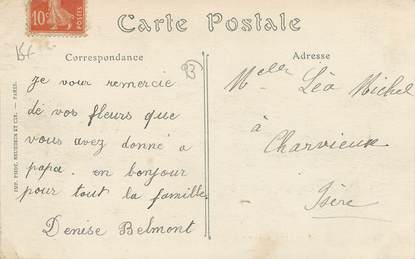 10c
POSTES
Carte Postale
Correspondance
Adresse
93
Je vour remercie
de vos fleurs que
vous avez donné a
papa. en bonjour
pour tout la famille
Denise Belmont
Melle Léa Michel
à
Charvieux
Isère
IMP. PHOT. NEURDEIN ET CIE. — PARIS.